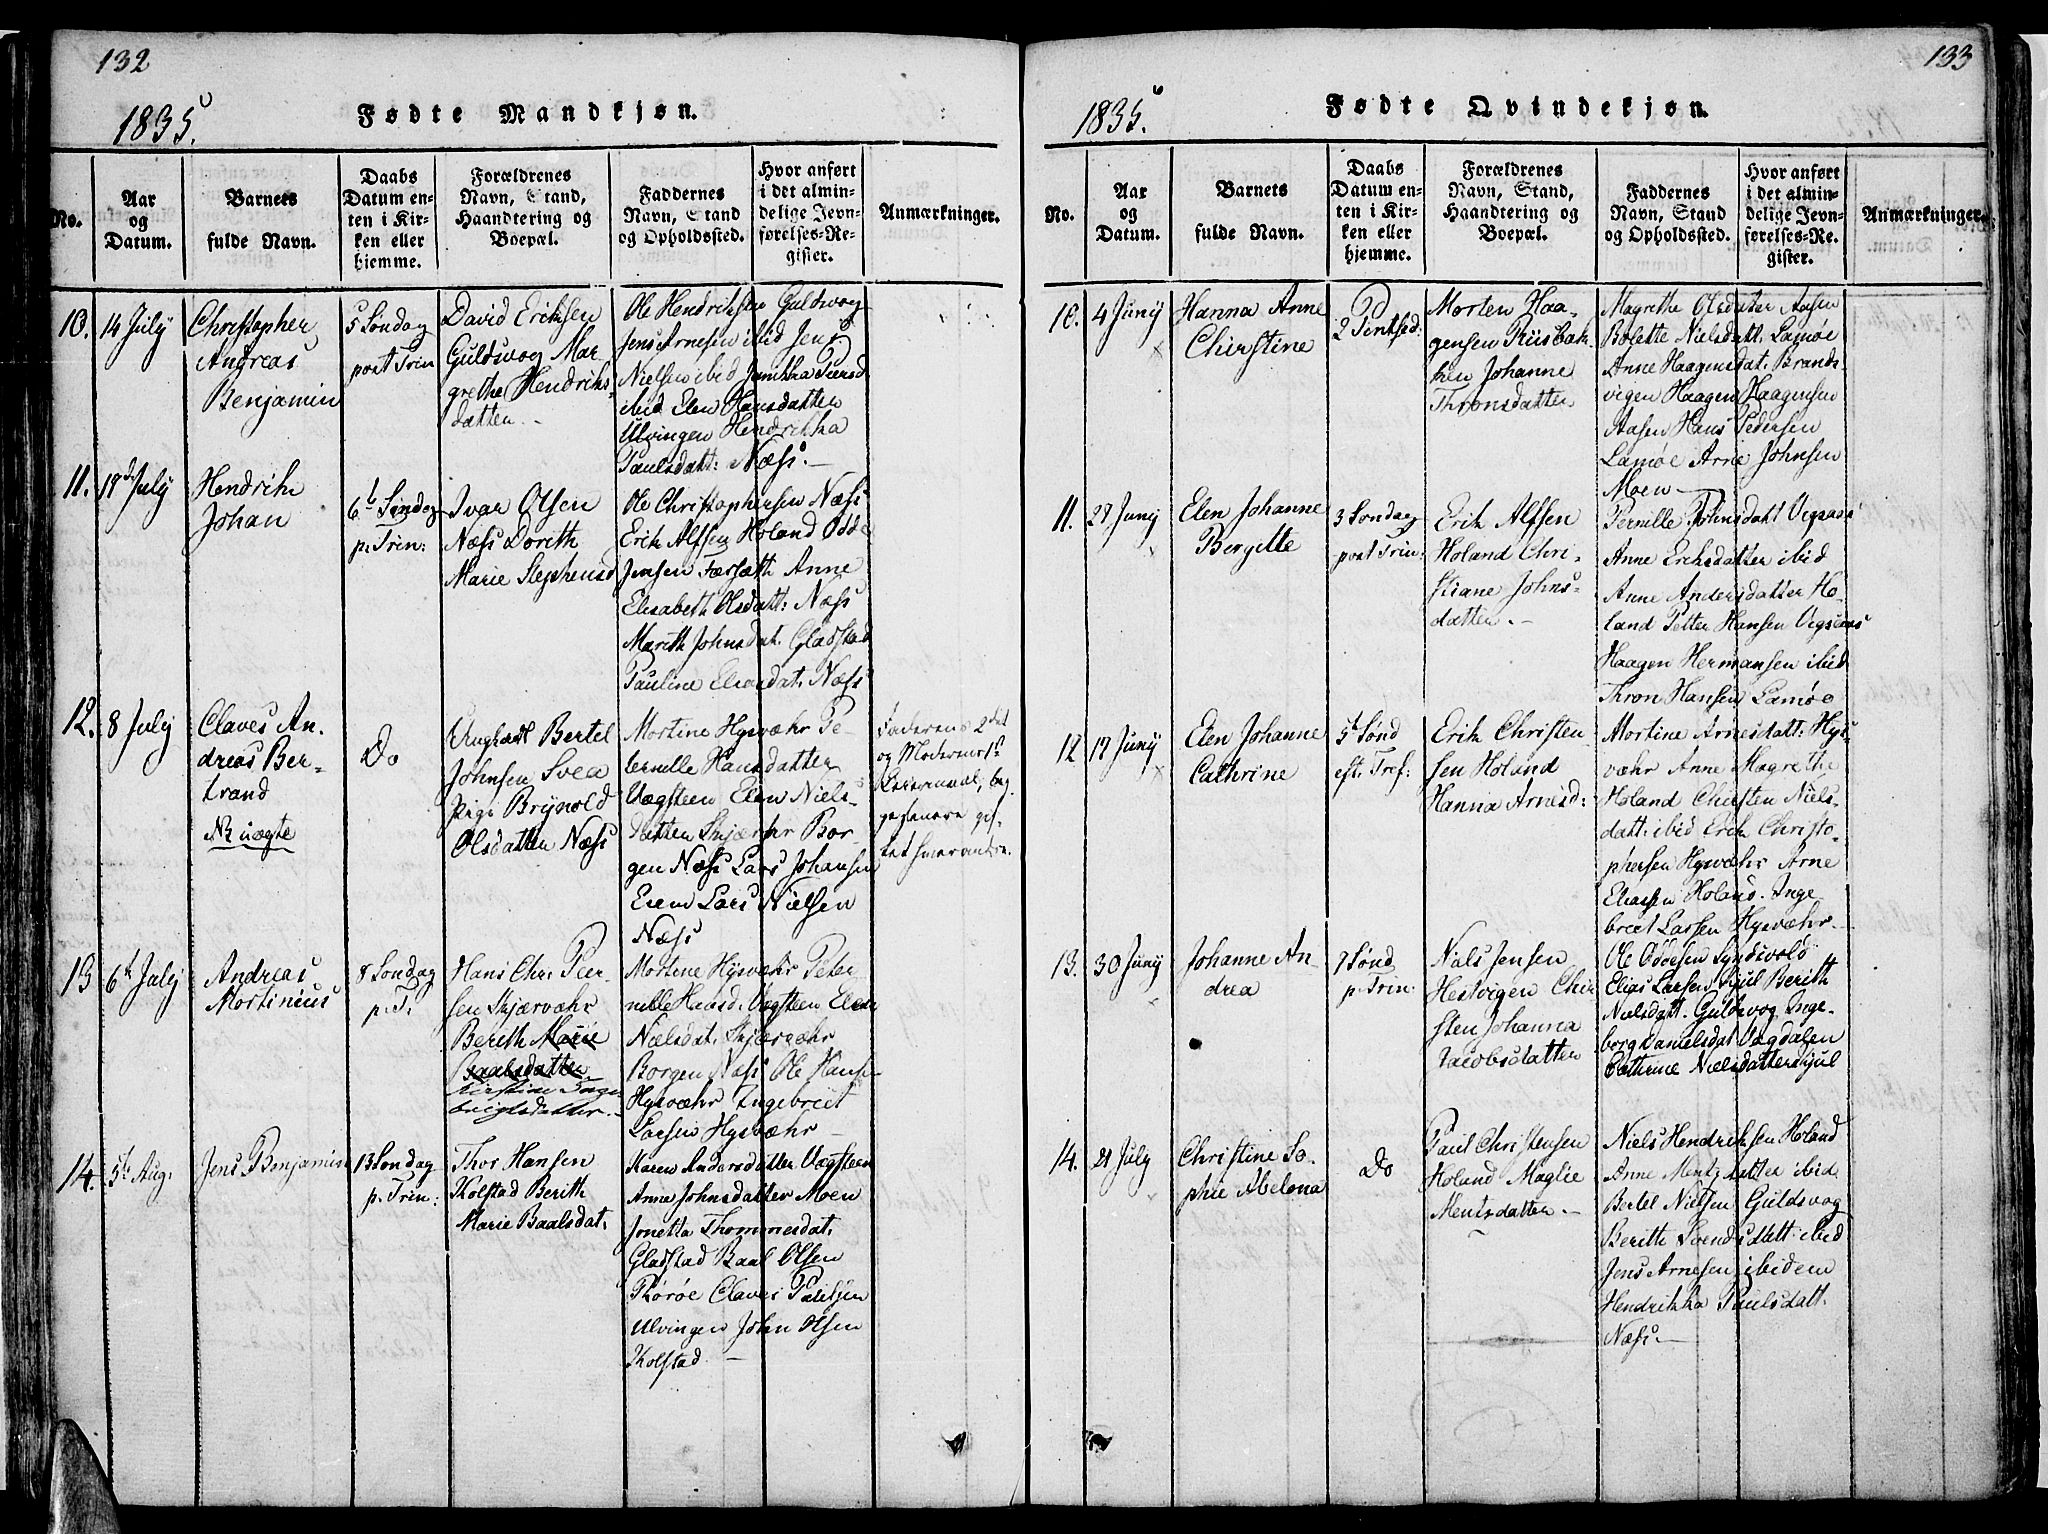 132
1835.
Fødte Mandkjøn.
No.
Aar
og
Datum.
Barnets
fulde Navn.
Daabs
Datum en-
ten i Kir-
ken eller
hjemme.
Forældrenes
Navn, Stand,
Haandtering og
Boepæl.
Faddernes
Navn, Stand
og Opholdssted.
Hvor anført
i det almin-
delige Jevn-
førelses-Re-
gister.
Anmærkninger.
10.
14 July
Christopher
Andreas
Benjamin
5 Søndag
post Trin
David Eriksen
Guldsvog Mar-
grethe Hendriks-
datter.
Ole Hendriksen Guldsvog
Jens Arnesen ibid Jens
Nielsen ibid Jmikka Peersd
ibid Elen Hansdatter
Ulvingen Hendrikka
Paulsdatt: Næss.
11.
19d July
Hendrik
Johan
6t Søndag
p. Trin:
Ivar Olsen
Næss Dorith
Marie Stephensd
Ole Christophersen Næss
Erik Alfsen Holand Odde
Jensen Forsæth Anne
Elisabeth Olsdatt: Næss
Marith Johnsdat. Gladstad
Pauline Eliasdat. Næss
12.
8 July
Claves An-
dreas Ber-
trand
NB uægte
Do
Ungkarl Bertel
Johnsen Svea
Pige Brynold
Olsdatter Næss
Mortine Hysvæhr Pe-
ternille Hansdatter
Vegsteen Elen Niels-
datter Skjærvær Bor-
gen Næss Lars Johansen
Erem Lars Nielsen
Næss
Faderens 2det
og Moderens 1ste
Leiermaal, beg-
ge senere gif-
tet hverandre.
13
6te July
Andreas
Mortinius
8 Søndag
p. T.
Hans Chr. Peer-
sen Skjærvæhr
Berith Marie
Baalsdatter
Kirstine Inge-
brigtsdatter.
Mortene Hysvæhr Peter
nille Hansd. Vegsteen Elen
Nielsdat. Skjærvæhr
Borgen Næss Ole Hanse
Hysvæhr Ingebreit
Larsen Hysvæhr
14.
5te Aug.
Jens Benjamin
13 Søndag
p. Trin:
Thor Hansen
Kolstad Berith
Marie Baalsdat.
Karen Andersdatter Vegsteen
Anne Johnsdatter Moen
Jonetta Thommesdat.
Gladstad Baal Olsen
Thorøe Claves Paulsen
Ulvingen John Olsen
Kolstad.
133
1835.
Fødte Qvindekjøn.
No.
Aar
og
Datum.
Barnets
fulde Navn.
Daabs
Datum en-
ten i Kir-
ken eller
hjemme.
Forældrenes
Navn, Stand,
Haandtering og
Boepæl.
Faddernes
Navn, Stand
og Opholdssted.
Hvor anført
i det almin-
delige Jevn-
førelses-Re-
gister.
Anmærkninger.
10.
4 Juny
Hanna Anne
Chirstine
2 Pintsed:
Morten Haa-
gensen Riisbak-
ken Johanne
Thronsdatter
Magrethe Olsdatter Aasen
Bolette Nielsdatt. Lamøe
Anne Haagensdat. Brands-
vigen Haagen Haagensen
Aasen Hans Pedersen
Lamøe Arne Johnsen
Moen
11.
27 Juny
Elen Johanne
Bergitte
3 Søndag
post Trin:
Erik Alfsen
Holand Chri-
stiane Johns-
datter.
Pernille Johnsdatt Vegsaas
Anne Eriksdatter ibid
Anne Andersdatter Ho-
land Petter Hansen Vegsaas
Haagen Hermansen ibid
Thron Hansen Lamøe
12
17 Juny
Elen Johanne
Cathrine
5t Sønd
eft. Tref:
Erik Christen-
sen Holand
Hanna Arnesd:
Mortine Arnesdatt: Hys-
væhr Anne Magrethe
Holand Chirsten Niels-
datt: ibid Erik Christo-
phersen Hysvæhr Arne
Eliassen Holand. Inge
breit Larsen Hysvæhr
13.
30 Juny
Johanne An-
drea
7 Sønd
p. Trin:
Niels Jensen
Hestvigen Chir
sten Johanna
Jacobsdatter
Ole Oddesen Syndsvold
Elias Larsen Skjul Berith
Nielsdatt. Guldsvog Inge-
borg Danielsdat Vegdalen
Cathrine Nielsdatter Skjul
14.
21 July
Christine So-
phie Abelona
Do
Paul Christensen
Holand Maglie
Mentsdatter
Niels Hendriksen Holand
Anne Mentzdatter ibid
Bertel Nielsen Guldsvog
Berith Svendsdatt. ibid
Jens Arnesen ibidem
Hendrikka Paulsdatt.
Næss.